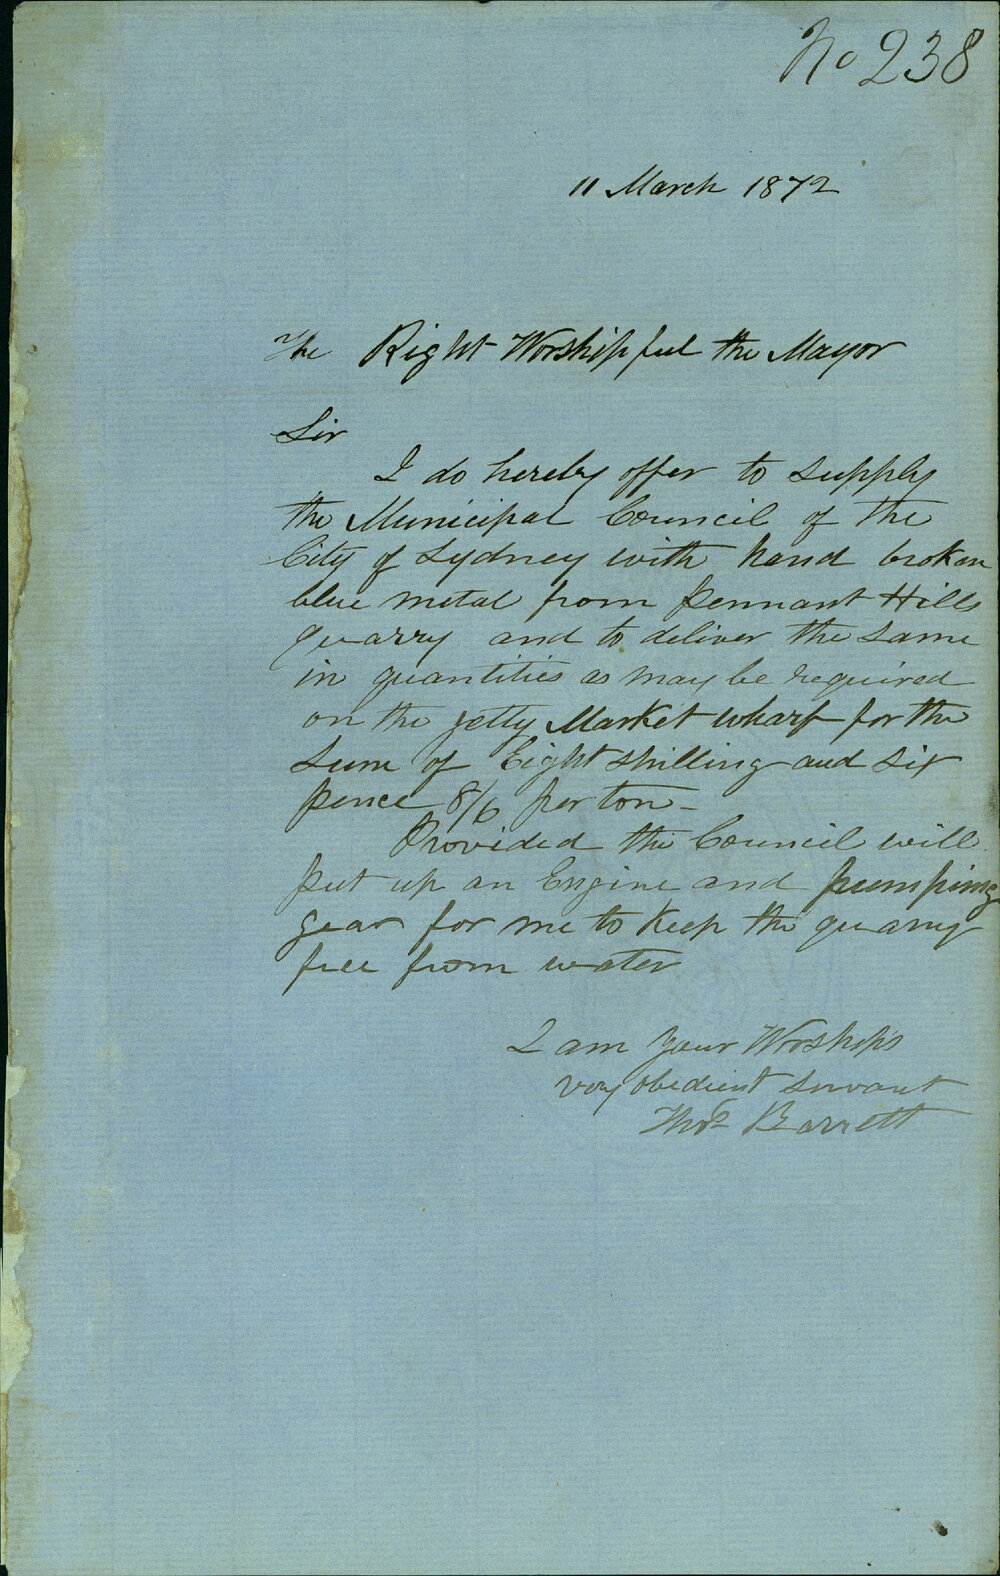 No 238
11 March 1872
The Right Worshipful the Mayor
Sir
I do hereby offer to supply
the Municipal Council of the
City of Sydney with hand broken
blue metal from Pennant Hills
quarry and to deliver the same
in quantities as may be required
on the jetty Market wharf for the
sum of Eight shilling and six
pence 8/6 per ton -
Provided the Council will
put up an Engine and pumping
gear for me to keep the quarry
free from water
I am your Worships
very obedient servant
Thos Barrett